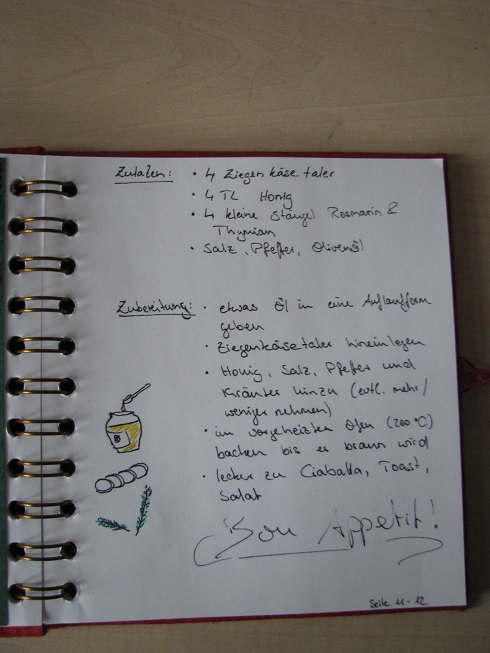 Zutaten:
• 4 Ziegenkäsetaler
• 4 TL Honig
• 4 kleine Stängel Rosmarin &
Thymian
• Salz, Pfeffer, Olivenöl
Zubereitung:
• etwas Öl in eine Auflaufform
geben
• Ziegenkäsetaler hineinlegen
• Honig, Salz, Pfeffer und
Kräuter hinzu (evtl. mehr/
weniger nehmen)
• im vorgeheizten Ofen (200°C)
backen bis er braun wird
• lecker zu Ciabatta, Toast,
Salat
Bon Appetit!
Seite 11-12